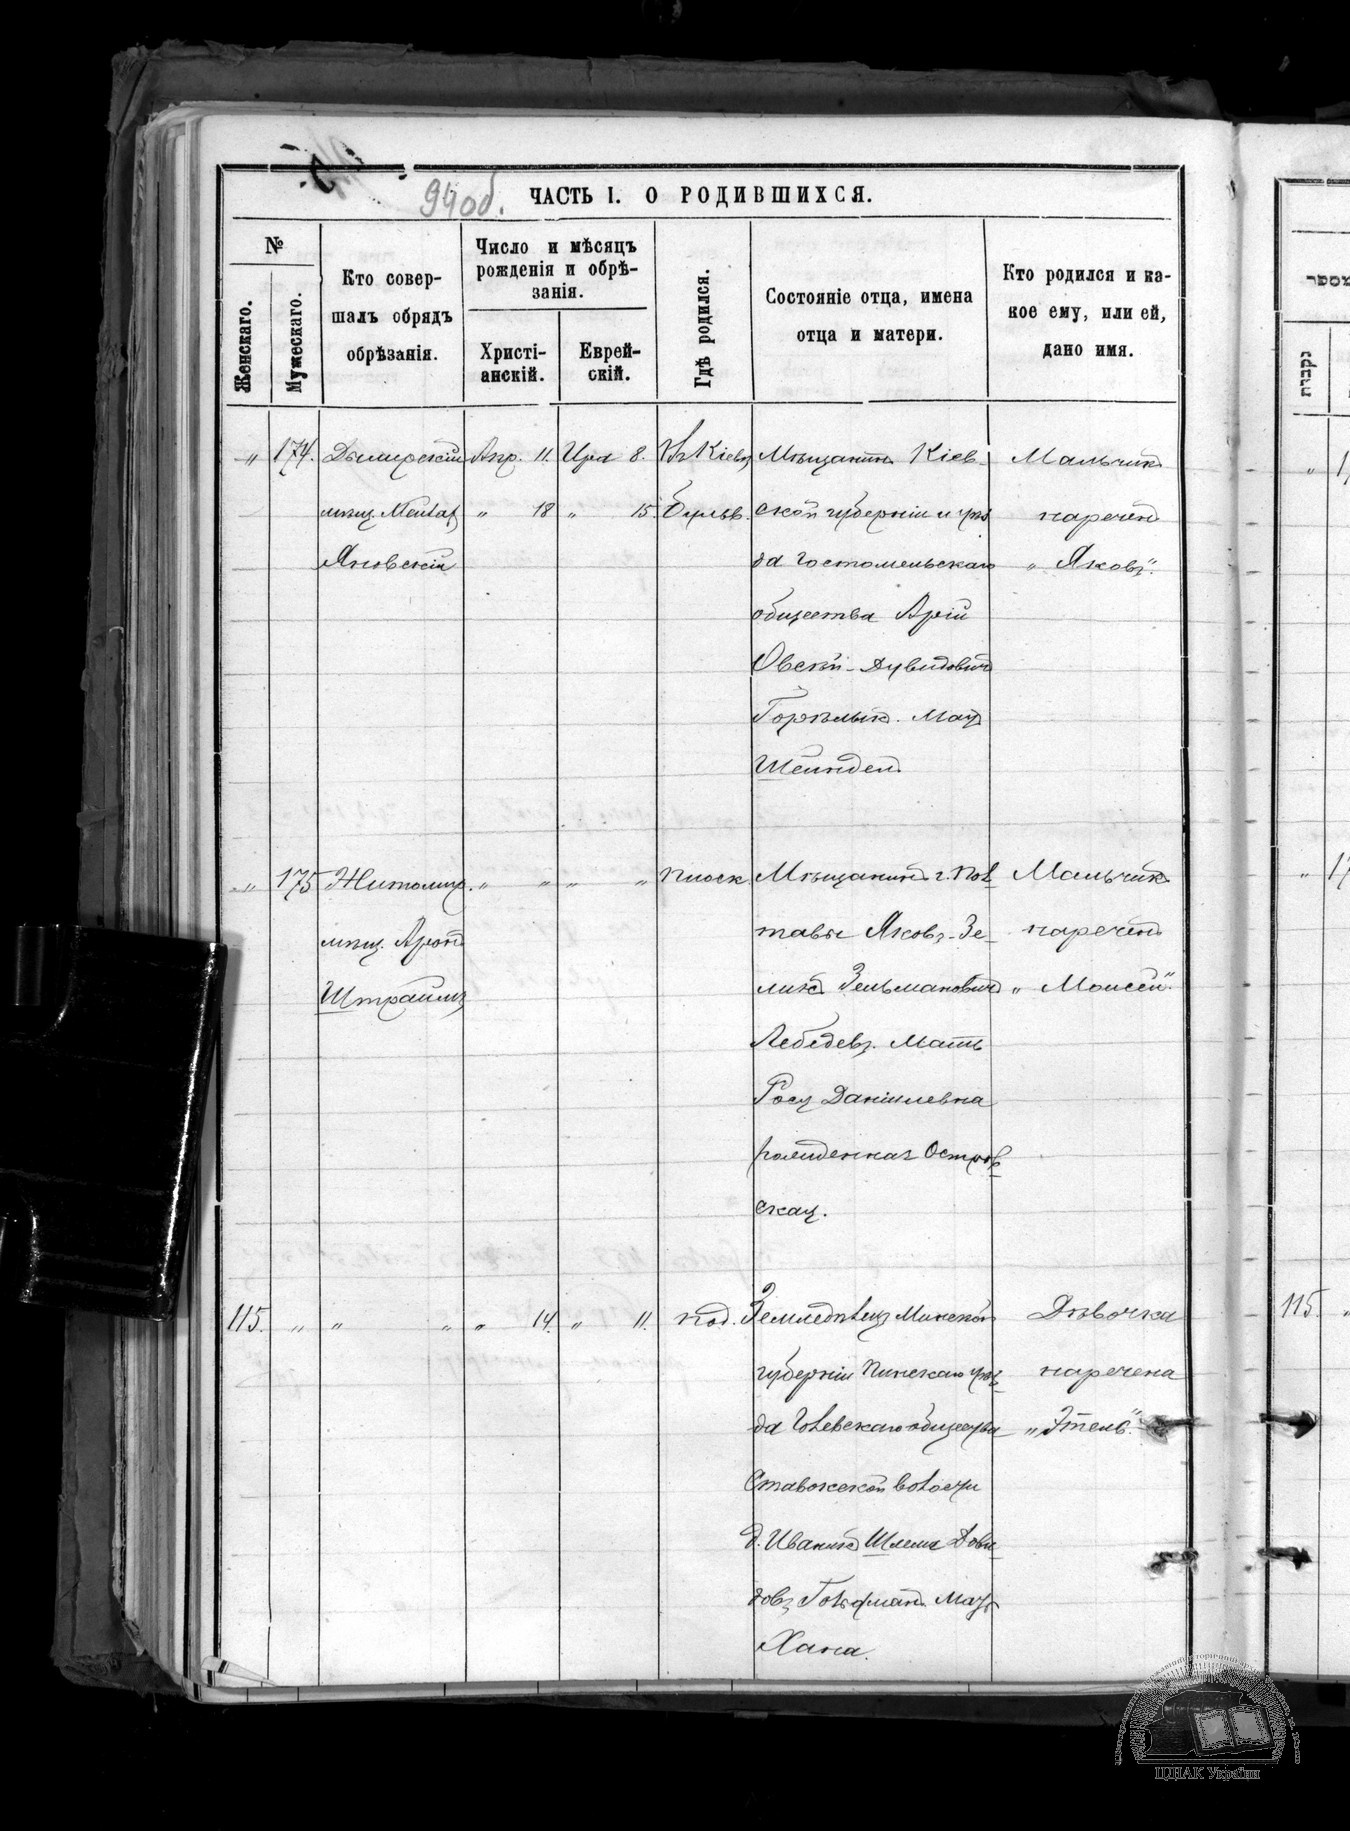 94об.
ЧАСТЬ I. О РОДИВШИХСЯ.
№
Женскаго.
Мужескаго.
Кто совер-
шалъ обрядъ
обрѣзанія.
Число и мѣсяцъ
рожденія и обрѣ-
занія.
Христі-
анскій.
Еврей-
скій.
Гдѣ родился.
Состояніе отца, имена
отца и матери.
Кто родился и ка-
кое ему, или ей,
дано имя.
„ 174. Дымерскій Апр. 11. Ира 8. Въ Кіевѣ Мѣщанинъ Кіев-
мѣщ. „ 18 „ 15. Бульв.
Яновскій
ской губерніи и уѣз
да Гостомельскаго
общества Арій
Овсей-Дувидовичъ
Горѣликъ. Мать
Шейндел
Мальчикъ
нареченъ
„Яковъ".
„ 175 Житомир. „ „ „ „ Плоск.
мѣщ. Аронъ
Штраймъ
Мѣщанинъ г. Пол
тавы Яковъ-Зе-
ликъ Зельмановичъ
Лебедевъ. Мать
Роса Даніилевна
рожденная Остров
ская.
Мальчикъ
нареченъ
„Моисей".
115. „ „ „ „ 14. „ 11. Под.
Земледѣлецъ Минской
губерніи Пинскаго уѣз
да общества
Ставокской волости
д. Иваники Шлема Дови
довъ Гольдманъ. Мать
Хана.
Дѣвочка
наречена
„Этель".
נקבות
מספר
„ 1
„ 17
115.
ЦДІАК України